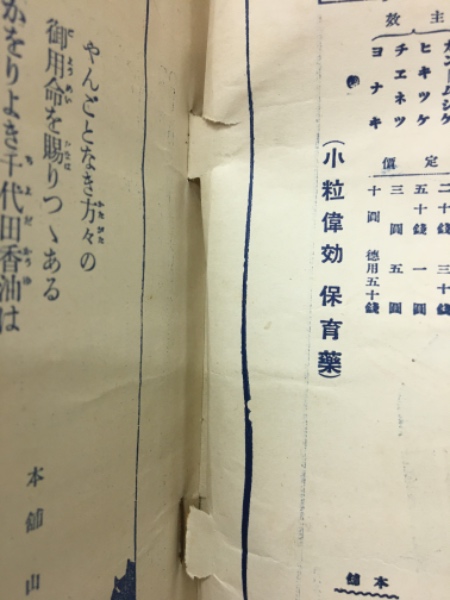 主効
カントムシケ
ヒキツケ
チヱネツ
ヨナキ
定價
二十錢 三十錢
五十錢 一圓
三圓 五圓
十圓 徳用五十錢
(小粒偉効 保育藥)
本舗
やんごとなき方々の
御用命を賜りつゝある
かをりよき千代田香油は
本舗 山